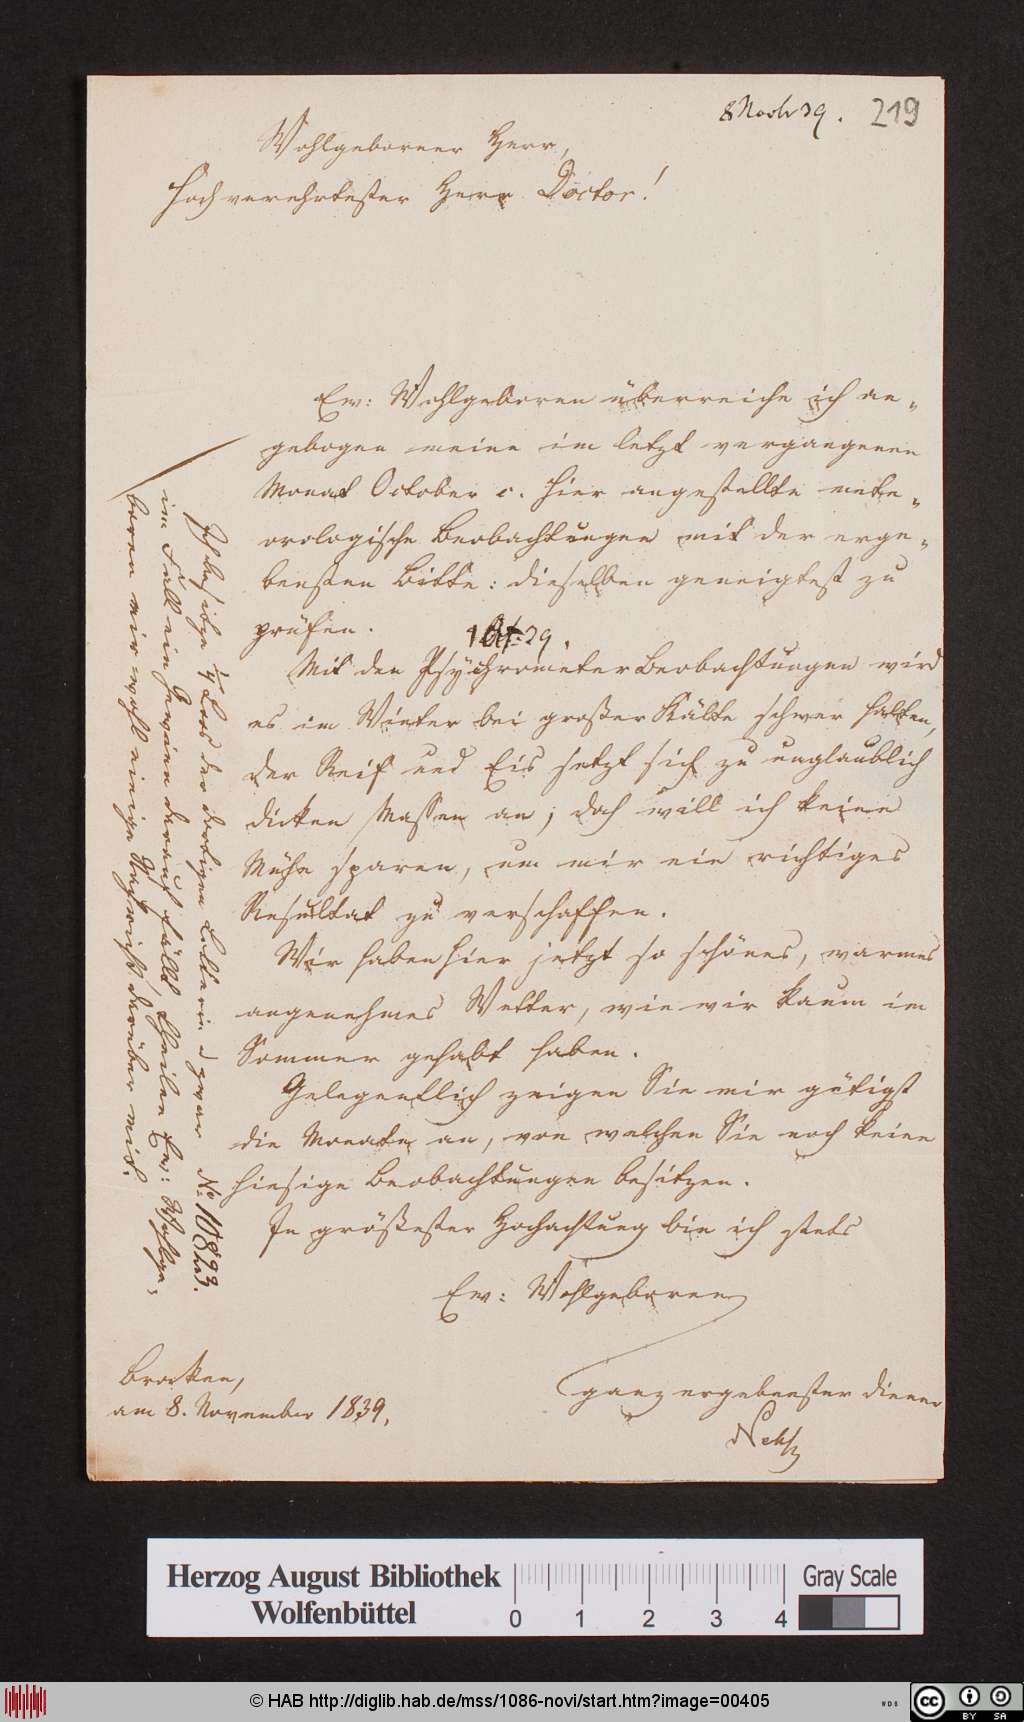 8 Novbr 39.
219
Wohlgeborner Herr,
Hochverehrtester Herr Doctor!
Ew: Wohlgeboren überreiche ich an-
gebogen meine im letzt vergangenen
Monat October c. hier angestellte mete-
orologische Beobachtungen mit der erge-
bensten Bitte: dieselben geneigtest zu
prüfen.
Mit den Psychrometer Beobachtungen wird
es im Winter bei großer Kälte schwer halten,
der Reif und Eis setzt sich zu unglaublich
dicken Massen an; doch will ich keine
Mühe sparen, um mir ein richtiges
Resultat zu verschaffen.
Wir haben hier jetzt so schönes, warmes
angenehmes Wetter, wie wir kaum im
Sommer gehabt haben.
Gelegentlich zeigen Sie mir gütigst
die Monate an, von welchen Sie noch keine
hiesige Beobachtungen besitzen.
In größester Hochachtung bin ich stets
Ew: Wohlgeboren
ganz ergebenster Diener
Nehse
Brocken,
am 8. November 1839.
Ich besitze 1/4 Loos der dortigen Lotterie u zwar No: 10893.
im Fall ein Gewinn darauf fällt, theilen Ew: Wohlge-
boren mir wohl einige Nachricht darüber mit.
Herzog August Bibliothek
Wolfenbüttel
0 1 2 3 4
Gray Scale
© HAB http://diglib.hab.de/mss/1086-novi/start.htm?image=00405
WDB
CC BY SA